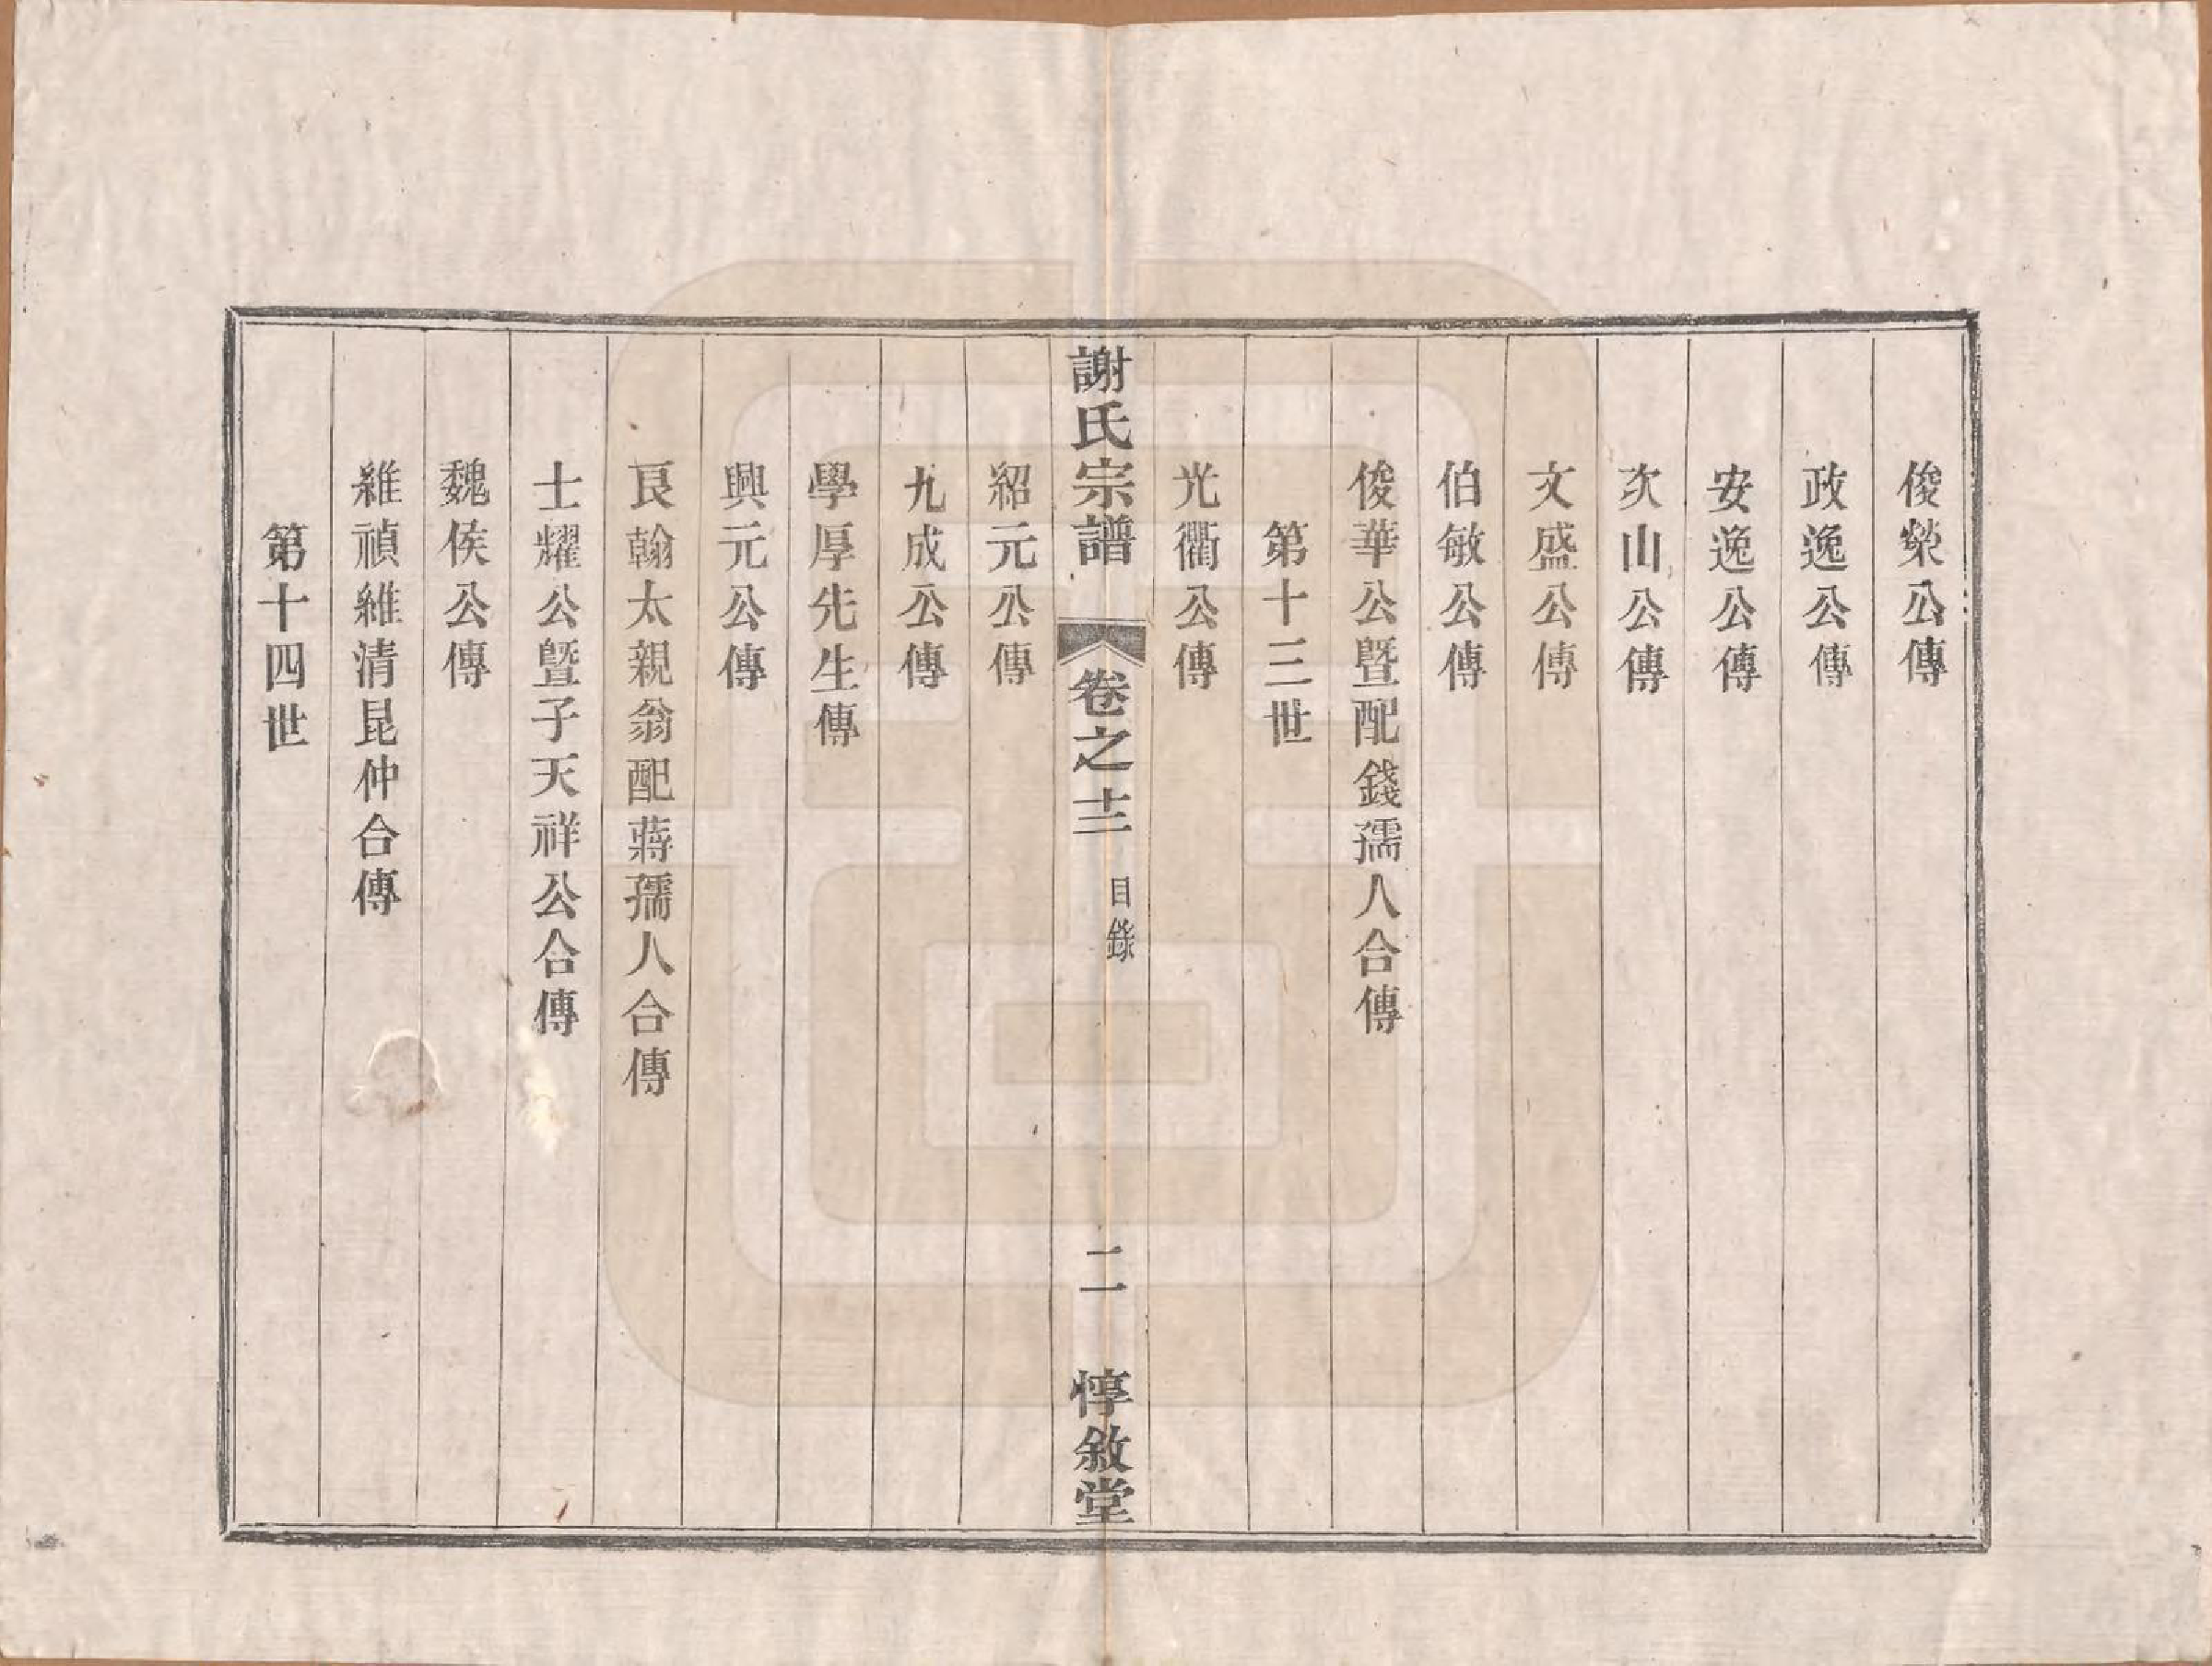 俊榮公傳
政逸公傳
安逸公傳
次山公傳
文盛公傳
伯敏公傳
俊華公暨配錢孺人合傳
第十三世
光衢公傳
謝氏宗譜
卷之十二
目錄
二
惇敘堂
紹元公傳
九成公傳
學厚先生傳
興元公傳
良翰太親翁配蔣孺人合傳
士耀公暨子天祥公合傳
魏侯公傳
維禎維清昆仲合傳
第十四世